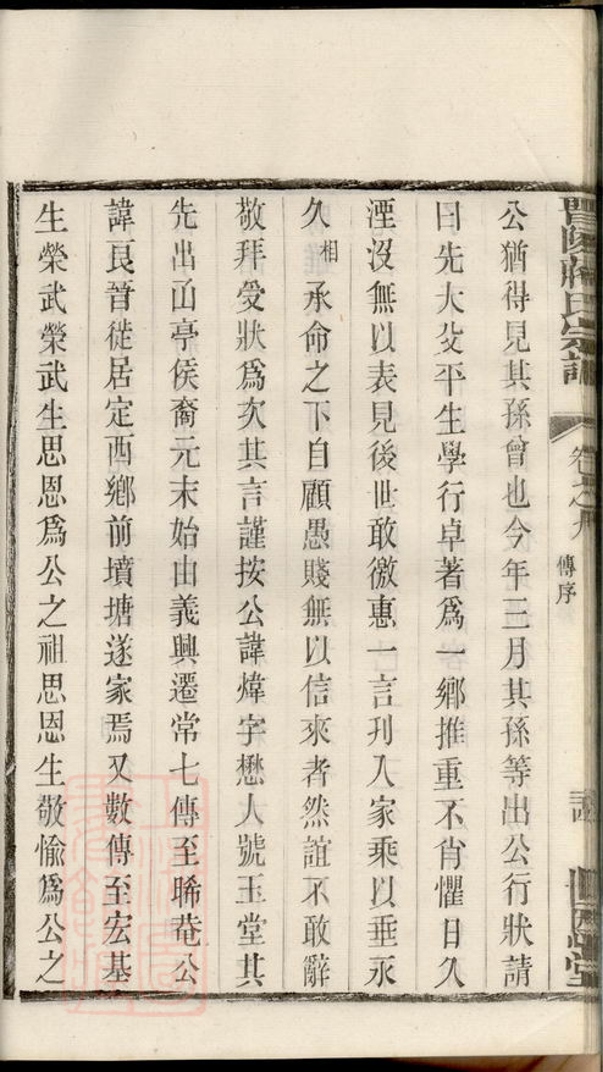 晉陵蔣氏宗譜
卷之九
傳序
公猶得見其孫曾也今年三月其孫等出公行狀請
曰先大父平生學行卓著爲一鄉推重不肖懼日久
湮沒無以表見後世敢徼惠一言刋入家乘以垂永
久相承命之下自顧愚賤無以信來者然誼不敢辭
敬拜受狀爲次其言謹按公諱煒字懋人號玉堂其
先出山亭侯裔元末始由義興遷常七傳至晞菴公
諱良晉徙居定西鄉前墳塘遂家焉又數傳至宏基
生榮武榮武生思恩爲公之祖思恩生敬愉爲公之